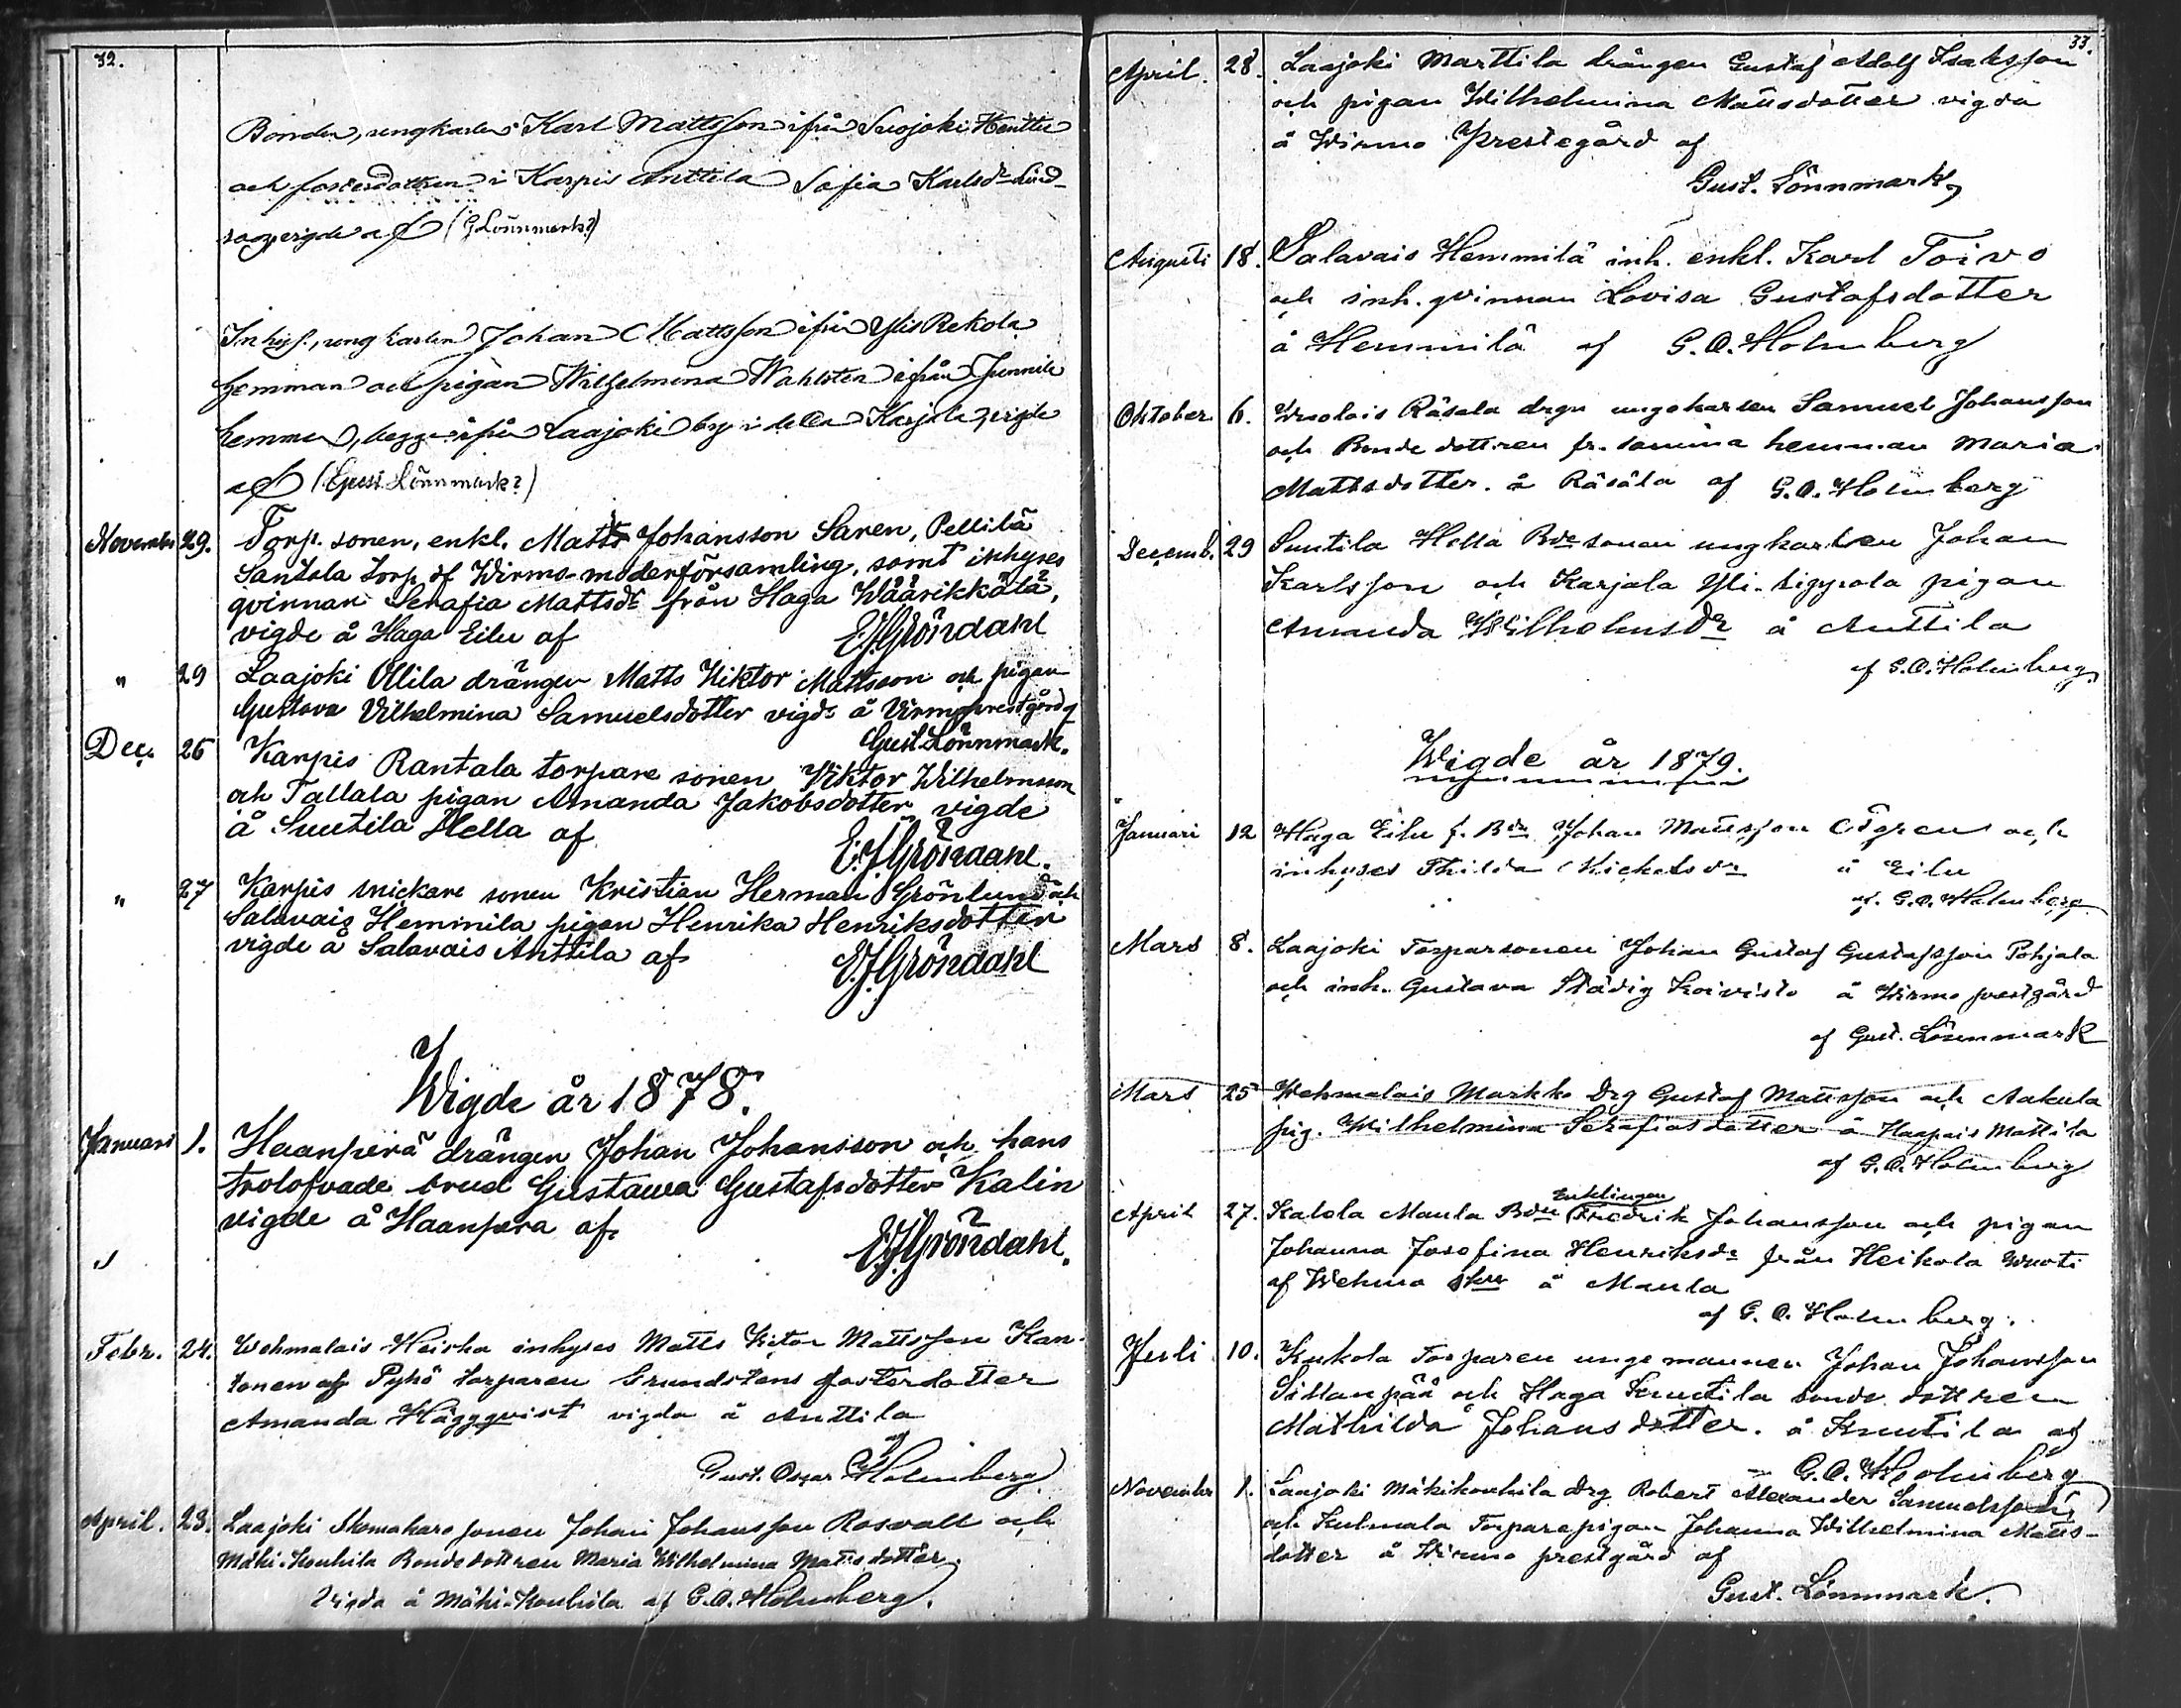 32.
Bonden, ungkarlen Karl Mattsson ifrån Suojoki Heuttu
och fosterdottren i Karpis Anttila Sofia Karlsdr Lind-
vigde af (G Lönnmark?)
Inhys., ungkarlen Johan Mattsson ifrån Ylis Rekola
hemman och pigan Wilhelmina Wahlsten ifrån Junnila
hemman, begge ifrån Laajoki by i Karjala, vigde
af (Gust. Lönnmark?)
November 29. Torp. sonen, enkl. Matts Johansson Saren, Pellilä
Santala torp af Wirmo moderförsamling, samt inhyses
qvinnan Serafia Mattsdr från Haga Wäärikkälä,
vigde å Haga Eilu af E.J. Gröndahl
" 29 Laajoki Ollila drängen Matts Wiktor Mattsson och pigan
Gustava Vilhelmina Samuelsdotter vigde å Virmo prestgård af
Gust Lönnmark.
Dec. 26 Karpis Rantala torpare sonen Viktor Wilhelmsson
och Tallala pigan Amanda Jakobsdotter vigde
å Suutila Hella af E.J. Gröndahl.
" 27 Karpis snickare sonen Kristian Herman Grönlund och
Salavais Hemmila pigan Henrika Henriksdotter
vigde å Salavais Anttila af E.J. Gröndahl
Wigde år 1878.
Januari 1. Haanperä drängen Johan Johansson och hans
trolofvade brud Gustawa Gustafsdotter Kalin
vigde å Haanpera af E.J. Gröndahl.
Febr. 24. Wehmalais Heicka inhyses Matts Victor Mattsson Kan-
tonen af Pyhö torparen Grundstens fosterdotter
Amanda Häggqvist vigda å Anttila
af Gust. Oscar Holmberg
April. 23. Laajoki Skomakare sonen Johan Johansson Rosvall och
Mäki-Kouhila Bondedottren Maria Wilhelmina Mattsdotter.
Vigda å Mäki-Kouhila af G.O. Holmberg.
33.
April. 28. Laajoki Marttila drängen Gustaf Adolf Isaksson
och pigan Wilhelmina Mattsdotter vigda
å Wirmo Prestegård af
Gust. Lönnmark
Augusti 18. Salavais Hemmilä inh. enkl. Karl Toivo
och inh. qvinnan Lovisa Gustafsdotter
å Hemmilä af G.O. Holmberg
Oktober 6. Wuolais Räsala drgn ungkarlen Samuel Johansson
och Bonde dottren fr. samma hemman Maria
Mattsdotter. å Räsäla af G.O. Holmberg
Decemb. 29 Suutila Hella Bde sonen ungkarlen Johan
Karlsson och Karjala Yli-Sippola pigan
Amanda Wilhelmsdr å Anttila
af G.O. Holmberg.
Wigde år 1879.
Januari 12 Haga Eilu f. Bdn Johan Mattsson Ögren och
inhyses Thilda Mickelsdr å Eilu
af. G.O. Holmberg
Mars 8. Laajoki Torparsonen Johan Gustaf Gustafsson Pohjala
och inh. Gustava Städig Koivisto å Wirmo prestgård
af Gust. Lönnmark
Mars 25 Wehmalais Markko Drg Gustaf Mattsson och Aakula
pig. Wilhelmina Serafiasdotter å Haapais Mattila
af G.O. Holmberg
Enklingen
April 27. Kalela Maula Bdn Fredrik Johansson och pigan
Johanna Josefina Henriksdr från Heikola Wuoti
af Wehmo Skn å Maula
af G. O. Holmberg.
Juli 10. Kukola Torparen unge mannen Johan Johansson
Sillanpää och Haga Knuutila bonde dottren
Mathilda Johansdotter. å Knuutila af
G.O. Holmberg
November 1. Laajoki Mäkikouhila Drg Robert Alexander Samuelsson
och Kulmala Torparepigan Johanna Wilhelmina Matts-
dotter å Wirmo prestgård af
Gust. Lönnmark.